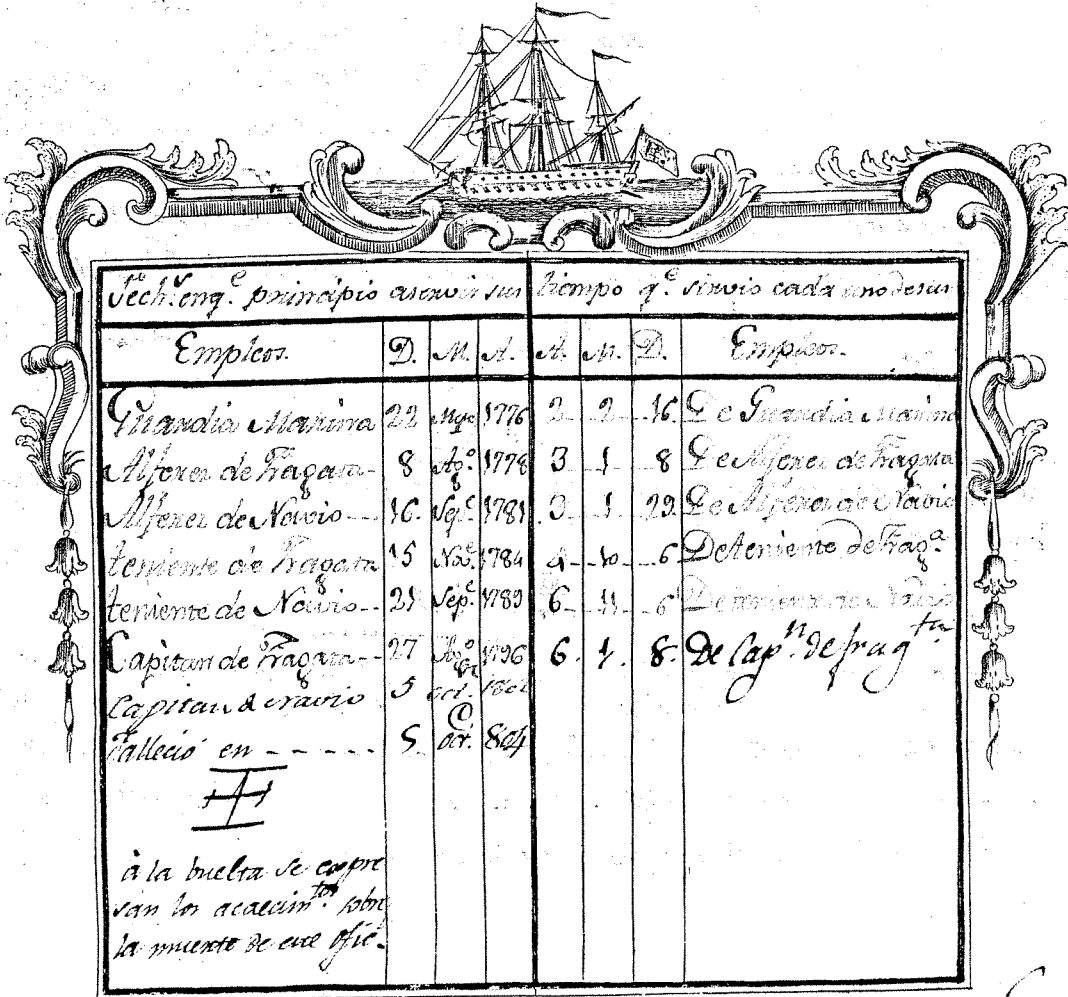 Fech.s en q.e principio a servir sus tiempo q.e sirvio cada uno de sus
Empleos. D. M. A. A. M. D. Empleos.
Guardia Marina 22 1776 2 2 16. De Guardia Marina
Alferez de Fragata 8 Ag.o 1778 3 1 8 De Alferez de Fragata
Alferez de Navio 16. Sep.e 1781 3 1 29 De Alferez de Navio
teniente de Fragata 15 Nov.e 1784 4 10 6 De teniente de Frag.a
teniente de Navio 21 Sep.e 1789 6 11 6 De teniente de Navio
Capitan de Fragata 27 Ag.o 1796 6. 1. 8. De Cap.n de frag.ta
Capitan de Navio 5 oct.
Falleció en ----- 5 oct. 804
à la buelta se expre
san los acaecim.tos sobre
la muerte de este Ofic.